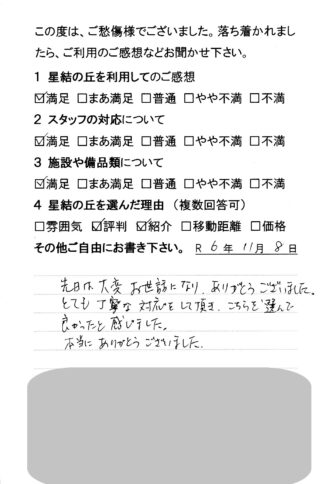 この度は、ご愁傷様でございました。落ち着かれまし
たら、ご利用のご感想などお聞かせ下さい。
1 星結の丘を利用してのご感想
☑満足 □まあ満足 □普通 □やや不満 □不満
2 スタッフの対応について
☑満足 □まあ満足 □普通 □やや不満 □不満
3 施設や備品類について
☑満足 □まあ満足 □普通 □やや不満 □不満
4 星結の丘を選んだ理由（複数回答可）
□雰囲気 ☑評判 ☑紹介 □移動距離 □価格
その他ご自由にお書き下さい。 R 6年 11月 8日
先日は大変お世話になり、ありがとうございました。
とても丁寧な対応をして頂き、こちらを選んで
良かったと感じました。
本当にありがとうございました。